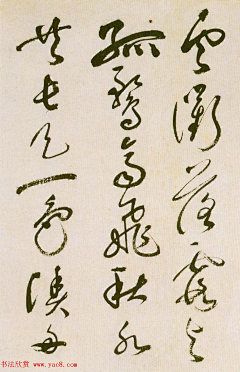 雲衢落霞與
孤鶩齊飛秋水
共長天一色漁舟
书法欣赏 www.yac8.com